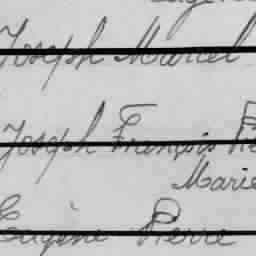 Joseph Marcel
Joseph François
Marie
Eugène Pierre